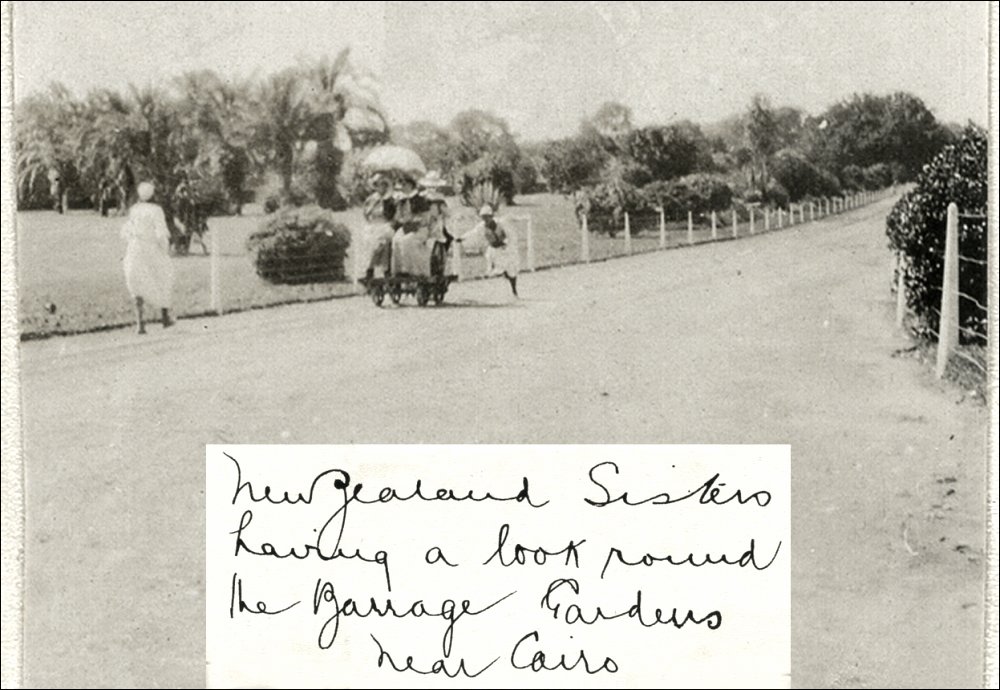 New Zealand Sisters
having a look round
the Barrage Gardens
near Cairo